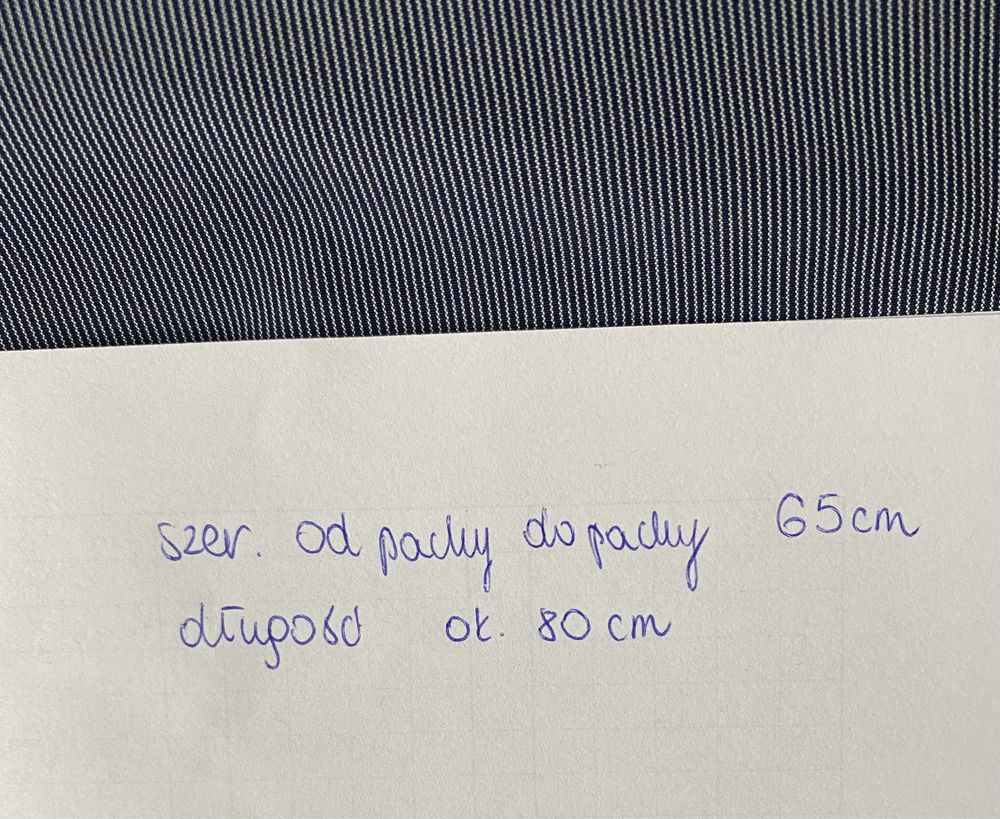 szer. od pachy do pachy 65cm
długość ok. 80 cm